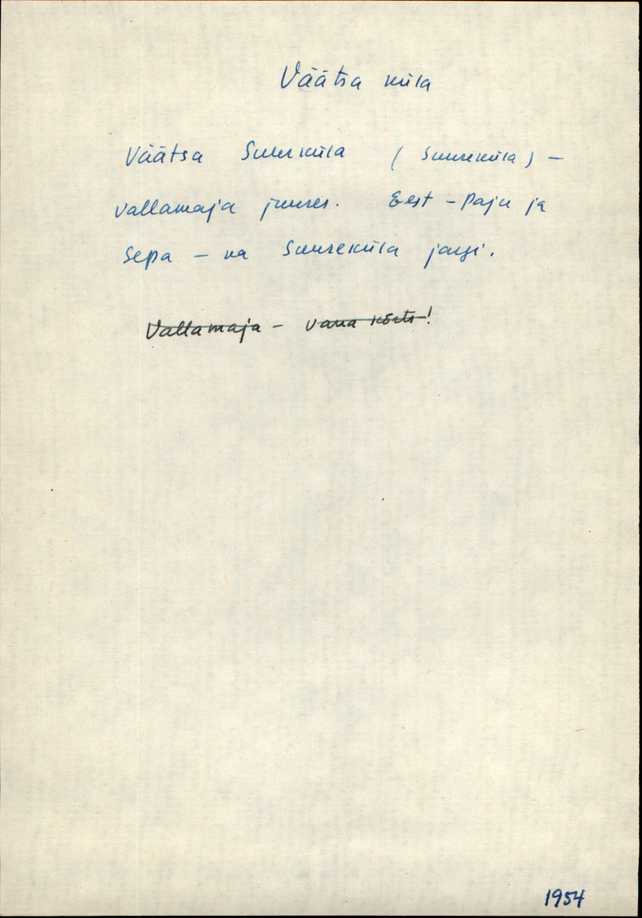 Väätsa küla
Väätsa Suurküla (Suureküla) –
vallamaja juures. Eest-Paju ja
Sepa – ka Suureküla järgi.
Vallamaja – vana kõrts!
1954